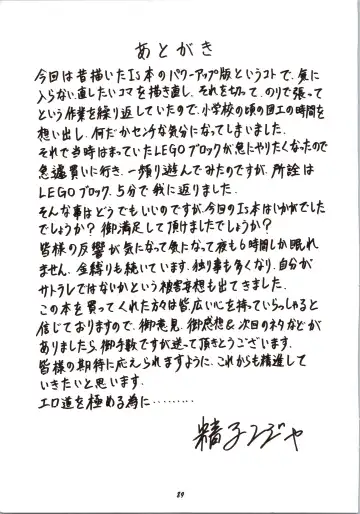 あとがき
今回は昔描いたIs本のパワーアップ版というコトで、気に
入らない直したいコマを描き直し、それを切って、のりで張って
という作業を繰り返していたので、小学校の頃の図工の時間を
想い出し、何だかセンチな気分になってしまいました。
それで当時はまっていたLEGOブロックが急にやりたくなったので
急遽買いに行き、一頻り遊んでみたのですが、所詮は
LEGOブロック、5分で我に返りました。
そんな事はどうでもいいのですが、今回のIs本はいかがでした
でしょうか？御満足して頂けましたでしょうか？
皆様の反響が気になって気になって夜も6時間しか眠れ
ません。金縛りも続いています。独り事も多くなり、自分が
サトラレではないかという被害妄想も出てきました。
この本を買ってくれた方々は皆、広い心を持っていらっしゃると
信じておりますので、御意見、御感想&次回のネタなどが
ありましたら、御手数ですが送って頂きとうございます。
皆様の期待に応えられますように、これからも精進して
いきたいと思います。
エロ道を極める為に………
89